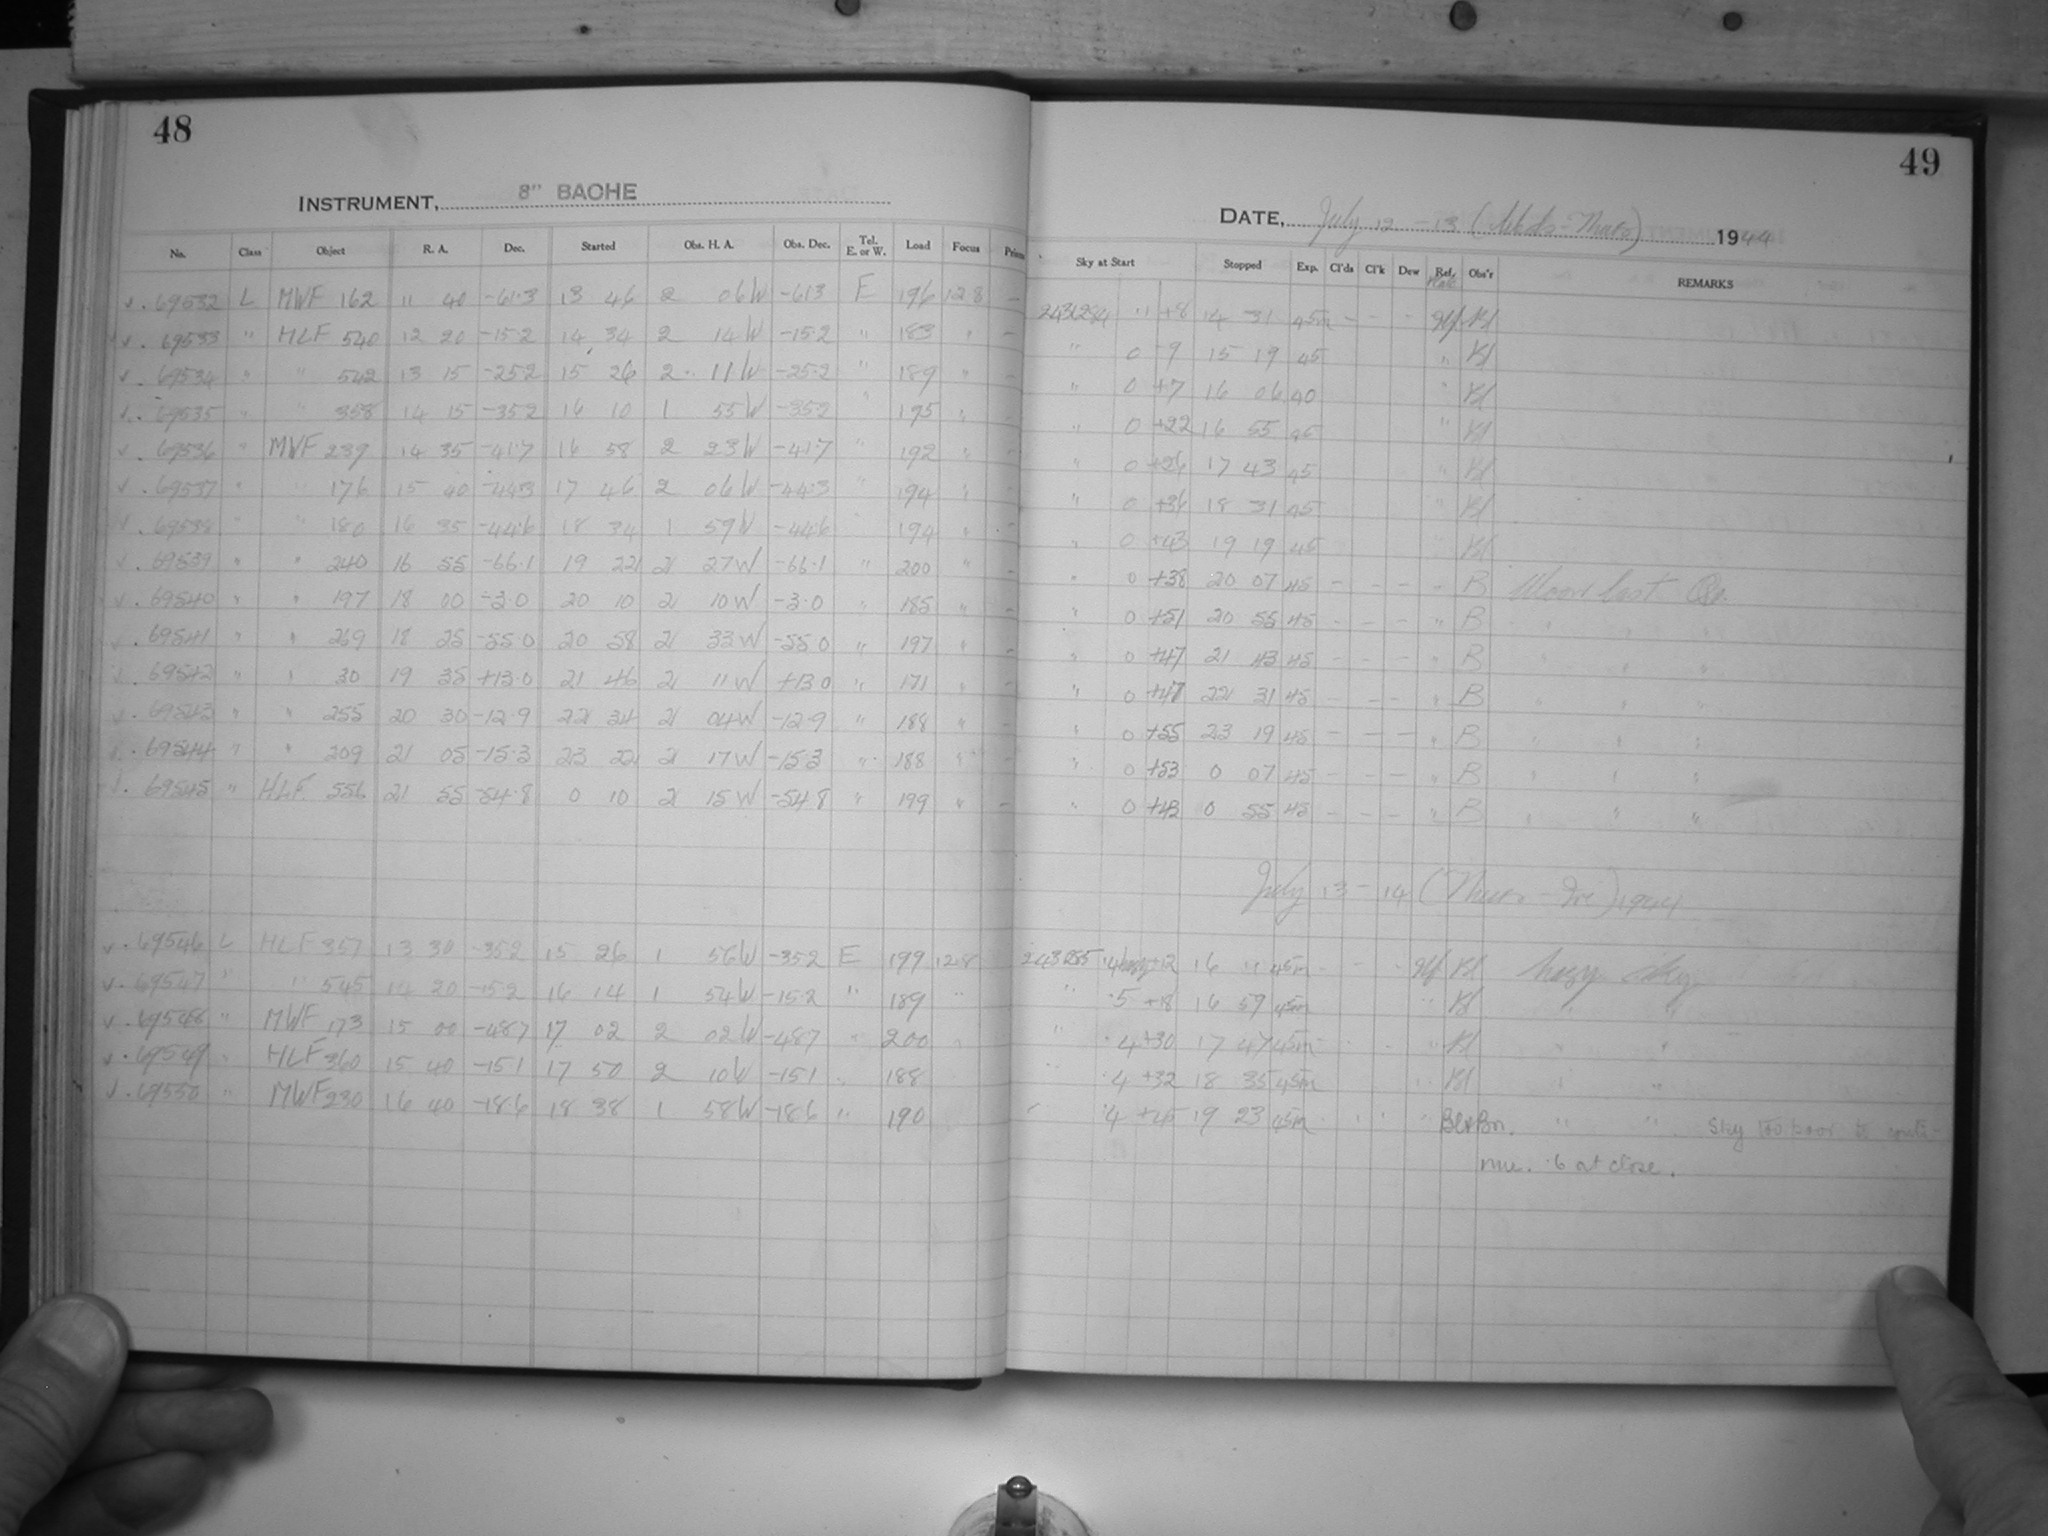 48
INSTRUMENT, 8" BACHE
No. Class Object R. A. Dec. Started Obs. H. A. Obs. Dec. Tel. E. or W. Load Focus
v. 69532 L MWF 162 11 40 -61.3 13 46 2 06W -61.3 E 196 12.8 -
v. 69533 " HLF 540 12 20 -15.2 14 34 2 14W -15.2 " 183 " -
v. 69534 " " 542 13 15 -25.2 15 26 2 11W -25.2 " 189 " -
v. 69535 " " 358 14 15 -35.2 16 10 1 55W -35.2 " 195 " -
v. 69536 " MWF 239 14 35 -41.7 16 58 2 23W -41.7 " 192 " -
v. 69537 " " 176 15 40 -44.3 17 46 2 06W -44.3 " 194 " -
v. 69538 " " 180 16 35 -44.6 18 34 1 59W -44.6 " 194 " -
v. 69539 " " 240 16 55 -66.1 19 22 2 27W -66.1 " 200 " -
v. 69540 " " 197 18 00 -3.0 20 10 2 10W -3.0 " 185 " -
v. 69541 " " 269 18 25 -55.0 20 58 2 33W -55.0 " 197 " -
v. 69542 " " 30 19 35 +13.0 21 46 2 11W +13.0 " 171 " -
v. 69543 " " 255 20 30 -12.9 22 34 2 04W -12.9 " 188 " -
v. 69544 " " 209 21 05 -15.3 23 22 2 17W -15.3 " 188 " -
v. 69545 " HLF 556 21 55 -54.8 0 10 2 15W -54.8 " 199 " -
v. 69546 L HLF 357 13 30 -35.2 15 26 1 56W -35.2 E 199 12.8
v. 69547 " " 545 14 20 -15.2 16 14 1 54W -15.2 " 189 "
v. 69548 " MWF 173 15 00 -48.7 17 02 2 02W -48.7 " 200 "
v. 69549 " HLF 360 15 40 -15.1 17 50 2 10W -15.1 " 188
v. 69550 " MWF 230 16 40 -18.6 18 38 1 58W -18.6 " 190
49
DATE, July 12 - 13 (Weds - Thurs) 1944
Sky at Start Stopped Exp. Cl'ds Cl'k Dew Ref. Plate Obs'r REMARKS
2431284 .1 +8 14 31 45m - - - Bl
" 0 -9 15 19 45 " Bl
" 0 +7 16 06 40 " Bl
" 0 +22 16 55 45 " Bl
" 0 +26 17 43 45 " Bl
" 0 +36 18 31 45 " Bl
" 0 +43 19 19 45 " Bl
" 0 +38 20 07 45 - - - " B Moon last Qr.
" 0 +51 20 55 45 - - - " B " " "
" 0 +47 21 43 45 - - - " B " " "
" 0 +47 22 31 45 - - - " B " " "
" 0 +55 23 19 45 - - - " B " " "
" 0 +53 0 07 45 - - - " B " " "
" 0 +43 0 55 45 - - - " B " " "
July 13 - 14 (Thurs - Fri) 1944
243285 .4 hazy +12 16 11 45m - - - Bl hazy sky
" .5 +18 16 59 45m " Bl " "
" .4 +30 17 47 45m " Bl " "
" .4 +32 18 35 45m " Bl " "
" .4 +45 19 23 45m " Bl+Bn. " " Sky too poor to conti-
nue. .6 at close.